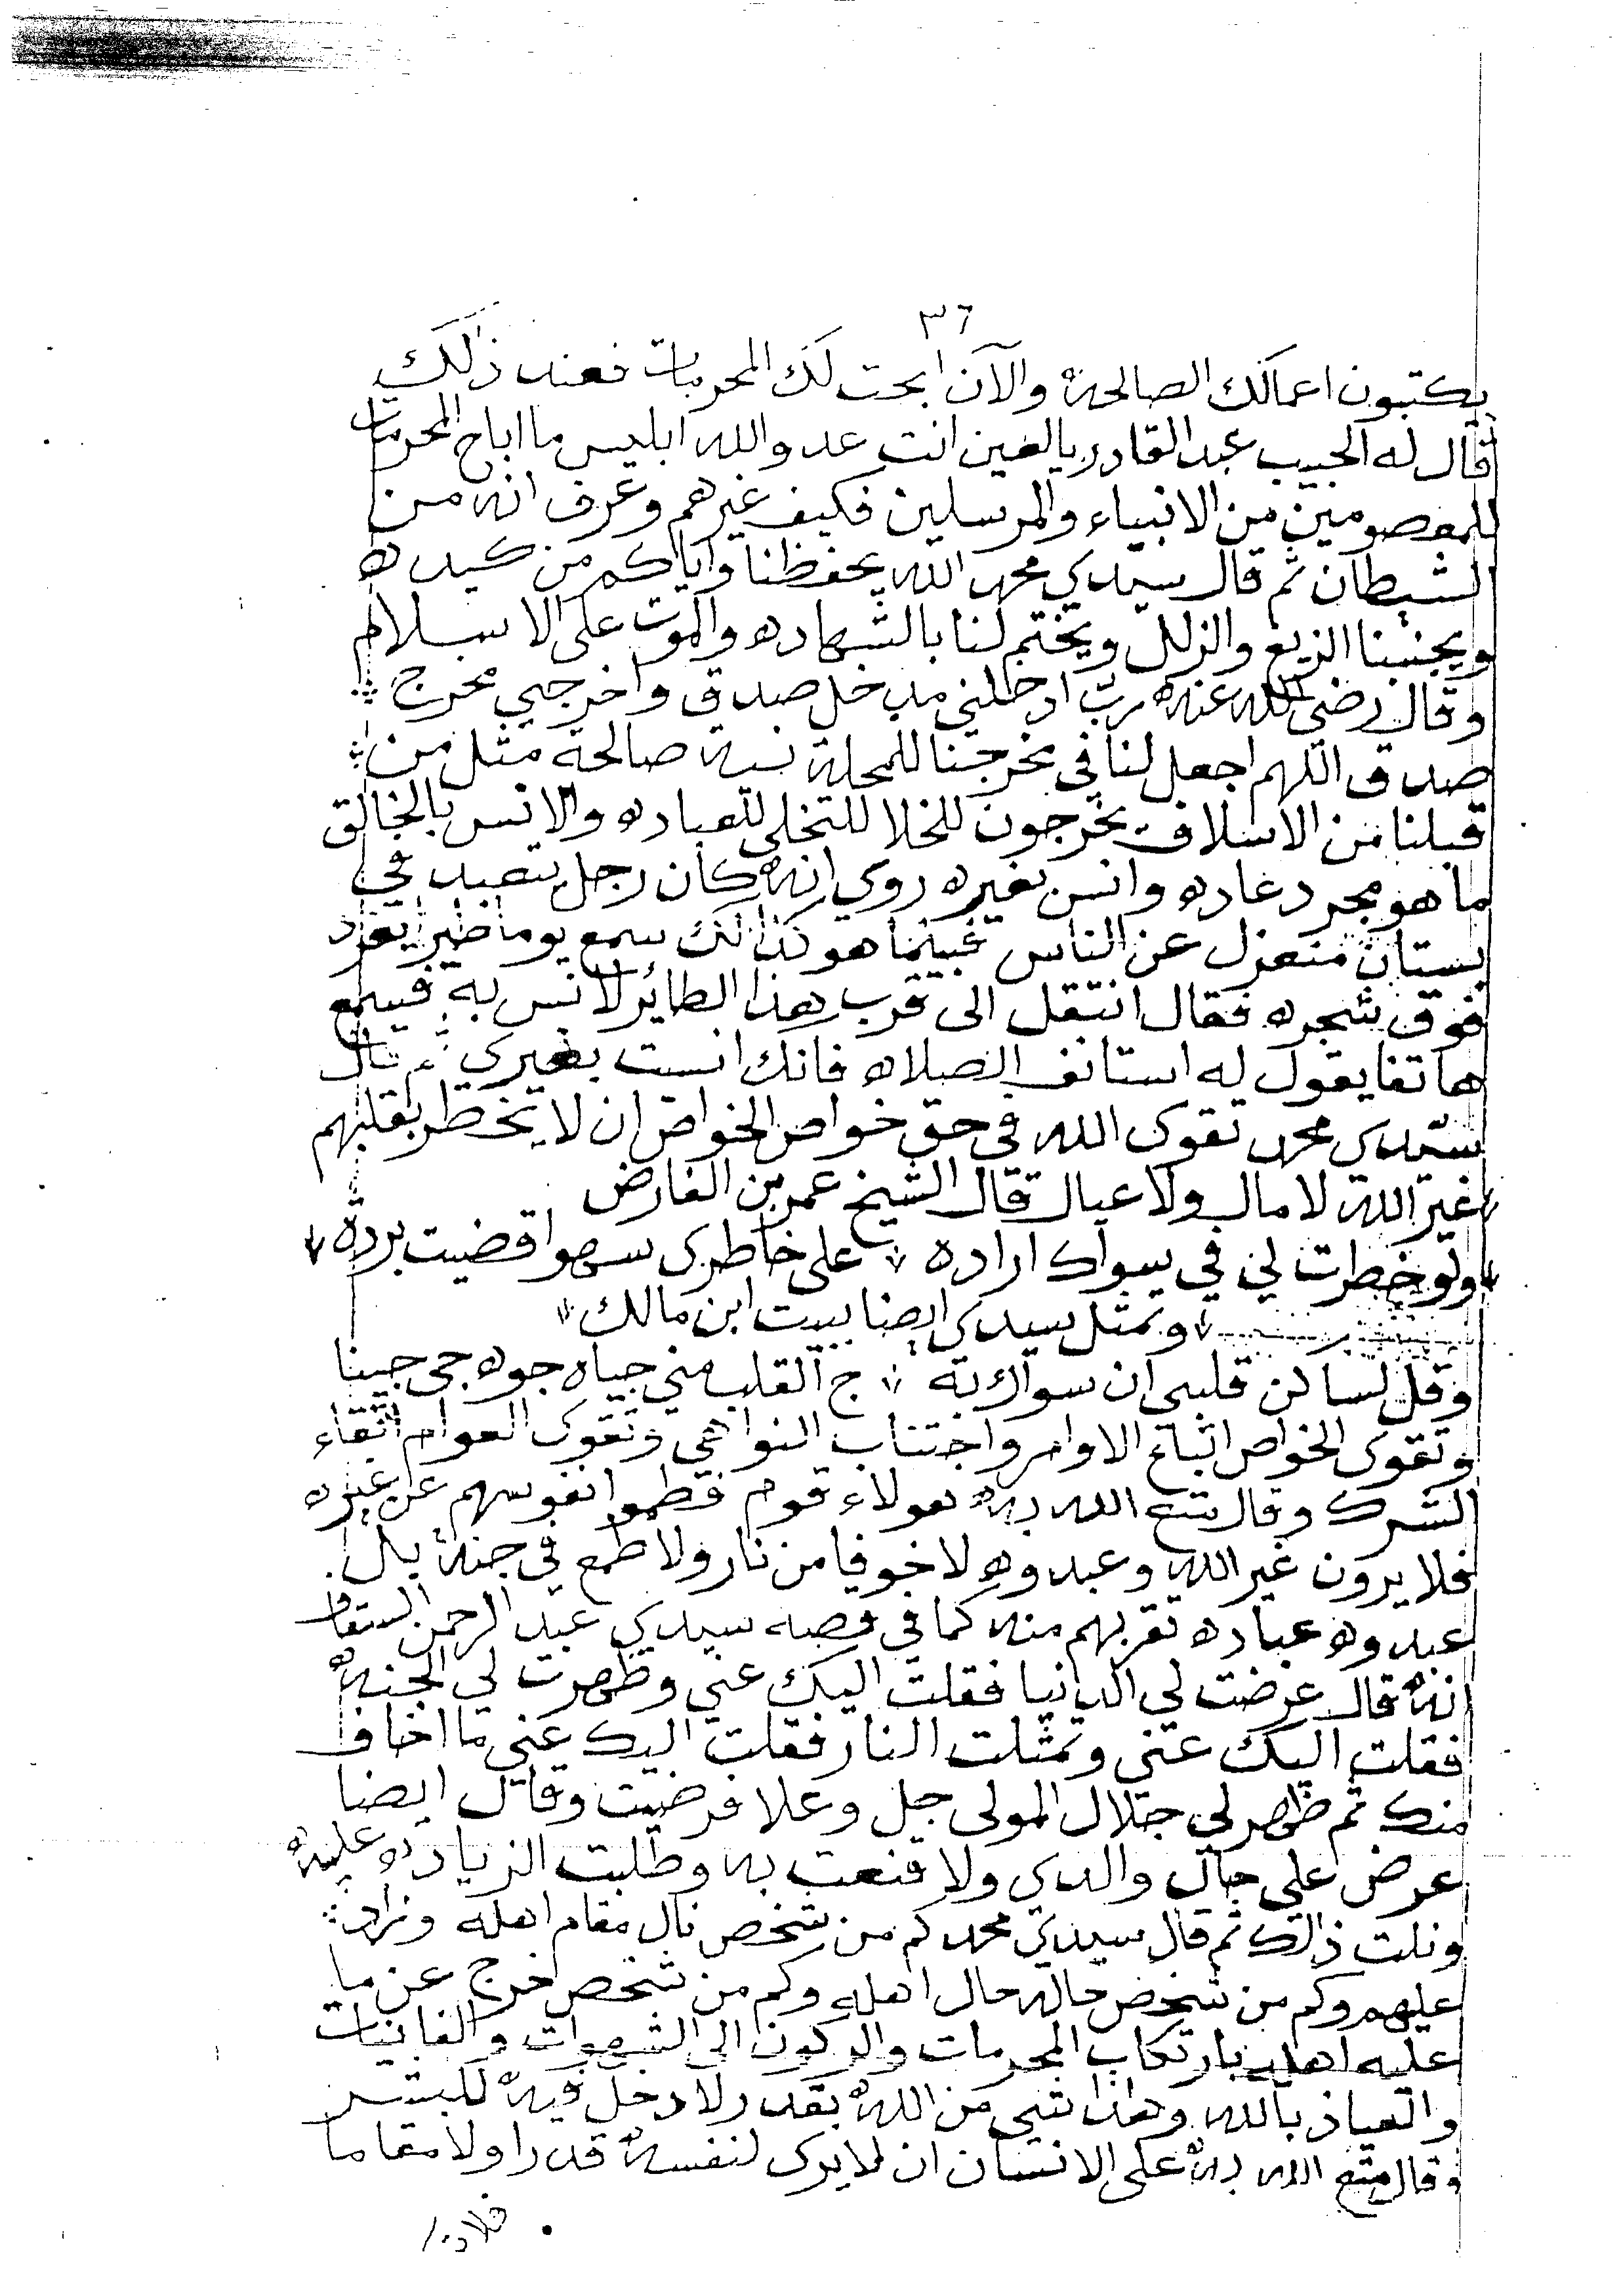 ٣٦
يكتبون اعمالك الصالحة والآن ابحت لك المحرمات فعند ذلك
قال له الحبيب عبد القادر يالعين انت عدو الله ابليس ما اباح المحرمات
للمعصومين من الانبياء والمرسلين فكيف غيرهم وعرف انه من
الشيطان ثم قال سيدي محمد الله يحفظنا واياكم من كيده
ويجنبنا الزيغ والزلل ويختم لنا بالشهاده والموت على الاسلام
وقال رضى الله عنه رب ادخلني مدخل صدق واخرجني مخرج
صدق اللهم اجعل لنا في مخرجنا للمحلة نية صالحة مثل من
قبلنا من الاسلاف يخرجون للخلا للتخلي للعباده والانس بالخالق
ما هو مجرد عاده وانس بغيره روي انه كان رجل يتعبد في
بستان منعزل عن الناس فبينما هو كذالك سمع يوما طير يغرد
فوق شجره فقال انتقل الى قرب هذا الطائر لانس به فسمع
هاتفا يقول له استانف الصلاه فانك انست بغيري ثم قال
سيدي محمد تقوى الله في حق خواص الخواص ان لا يخطر بقلبهم
غير الله لا مال ولا عيال قال الشيخ عمر بن الفارض
ولو خطرت لي في سواك اراده على خاطرى سهوا قضيت بردة
وتمثل سيدي ايضا ببيت ابن مالك
وقل لساكن قلبى ان سواك به ج القلب مني جياه جوه جى جينا
وتقوى الخواص اتباع الاوامر واجتناب النواهي وتقوى العوام اتقاء
الشرك وقال متع الله به هولاء قوم فطموا نفوسهم عن غيره
فلا يرون غير الله وعبدوه لا خوفا من نار ولا طمع في جنة بل
عبدوه عباده تقربهم منه كما في قصه سيدي عبد الرحمن السقاف
انه قال عرضت لي الدنيا فقلت اليك عني وظهرت لي الجنه
فقلت اليك عني وتمثلت النار فقلت اليك عني ما اخاف
منك ثم ظهر لي جلال المولى جل وعلا فرضيت وقال ايضا
عرض علي حال والدي ولا قنعت به وطلبت الزياده عليه
ونلت ذالك ثم قال سيدي محمد كم من شخص نال مقام اهله وزاد
عليهم وكم من شخص حاله حال اهله وكم من شخص خرج عن ما
عليه اهله بارتكاب المحرمات والركون الى الشهوات والفانيات
والعياذ بالله وهذا شي من الله بقدر لا دخل فيه للبشر
وقال متع الله به على الانسان ان لا يرى لنفسه قدرا ولا مقاما